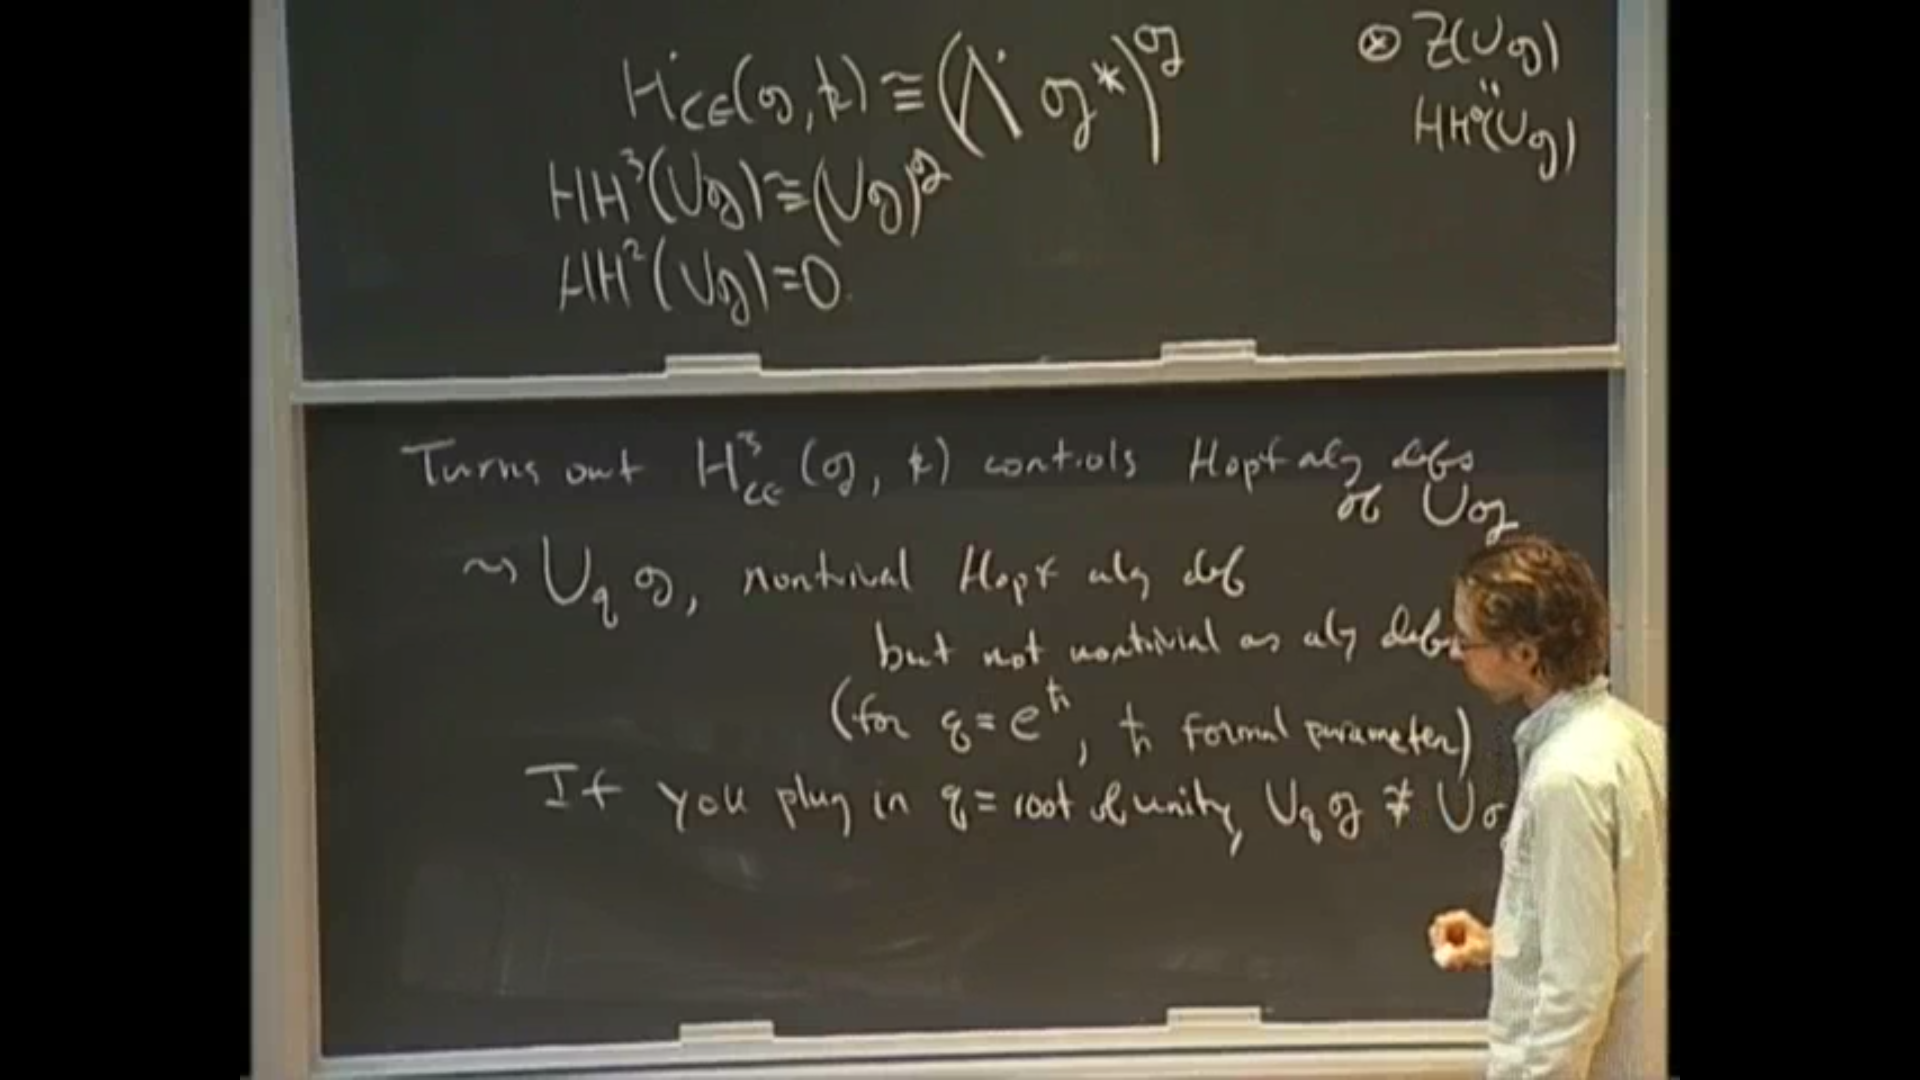 H^•_{CE}(𝔤, k) ≅ (Λ^• 𝔤*)^𝔤
⊗ Z(U𝔤)
HH⁰(U𝔤)
HH³(U𝔤) ≅ (U𝔤)^𝔤
HH²(U𝔤) = 0.
Turns out H³_{CE}(𝔤, k) controls Hopf alg defs
of U𝔤
⇝ U_q 𝔤, nontrivial Hopf alg def
but not nontrivial as alg def
(for q = e^ħ, ħ formal parameter)
If you plug in q = root of unity, U_q 𝔤 ≇ U𝔤